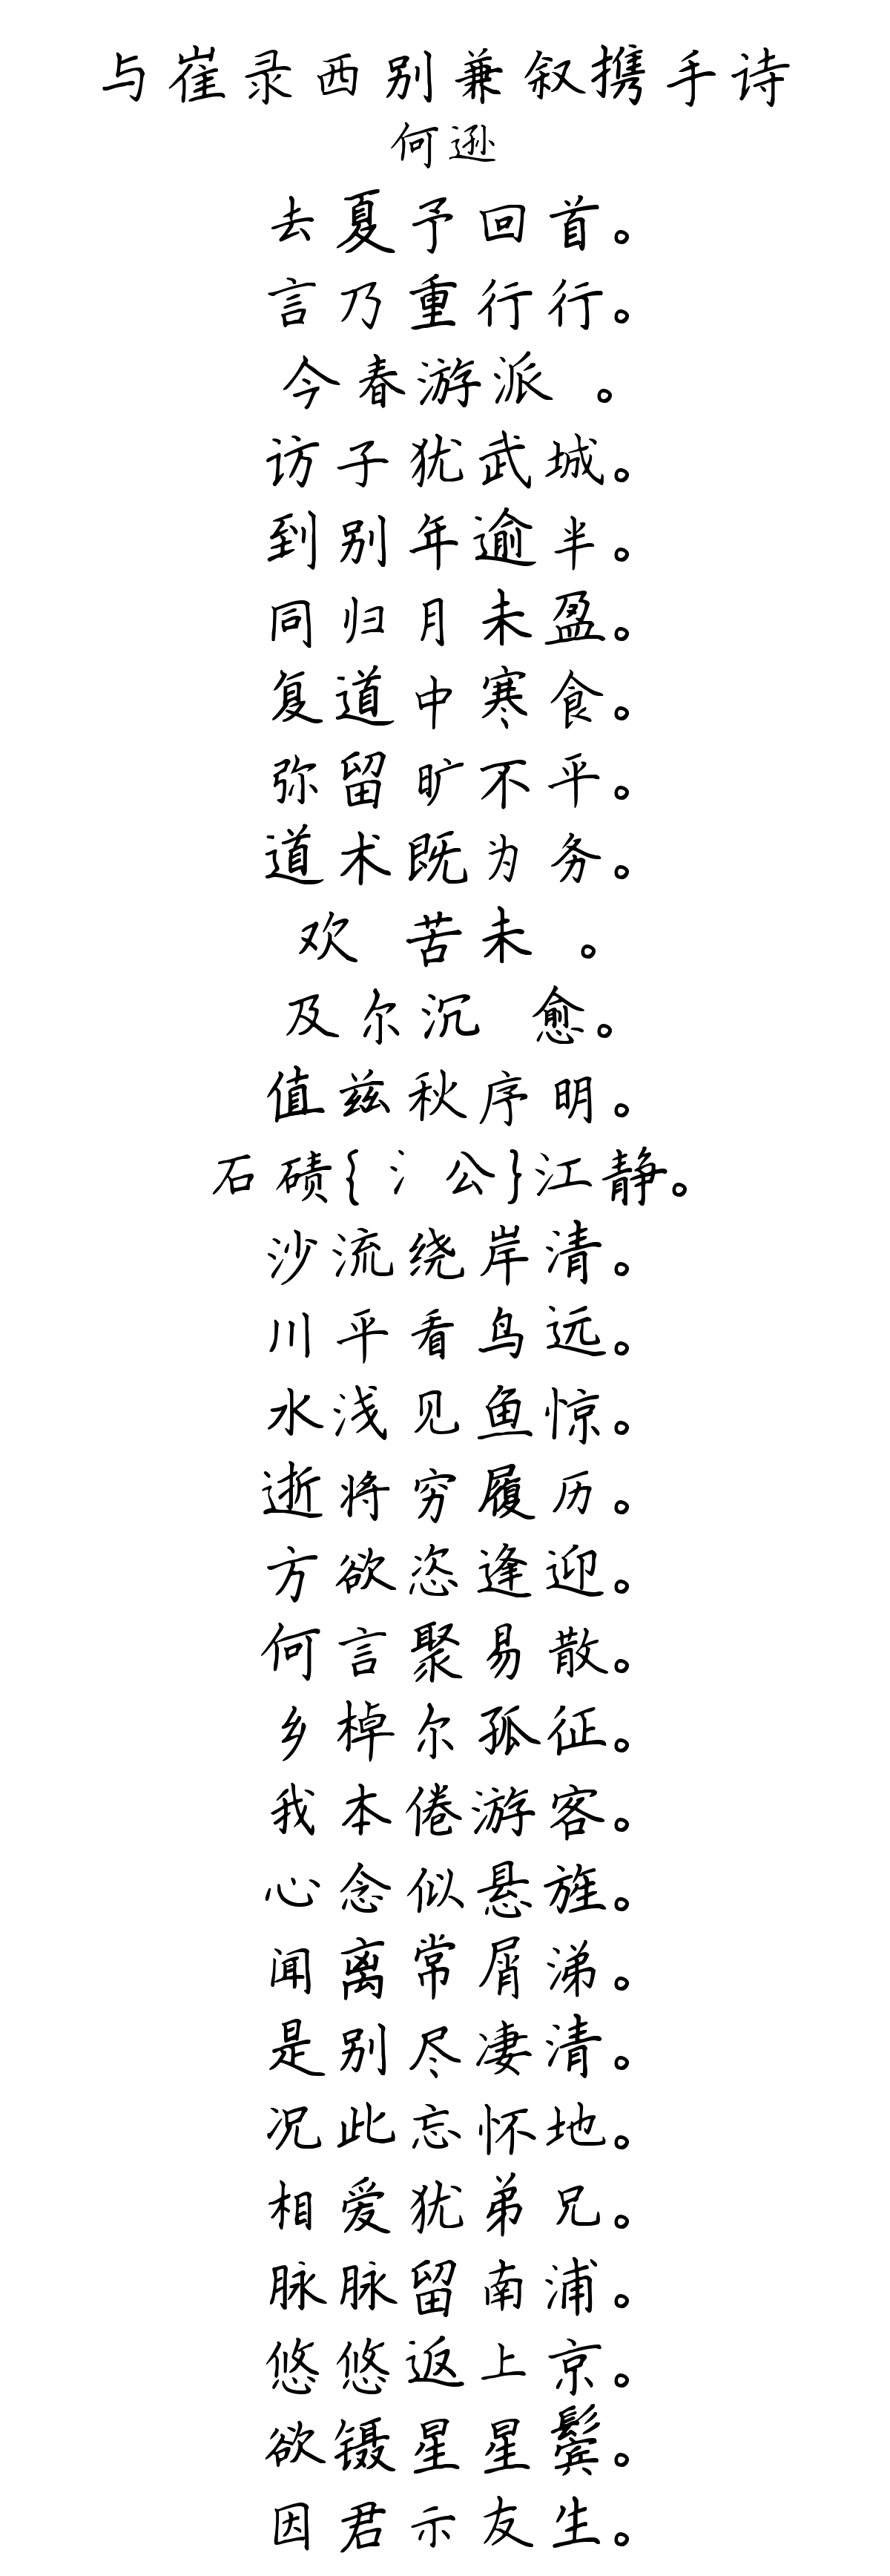 与崔录西别兼叙携手诗
何逊
去夏予回首。
言乃重行行。
今春游派 。
访子犹武城。
到别年逾半。
同归月未盈。
复道中寒食。
弥留旷不平。
道术既为务。
欢 苦未 。
及尔沉 愈。
值兹秋序明。
石碛{氵公}江静。
沙流绕岸清。
川平看鸟远。
水浅见鱼惊。
逝将穷履历。
方欲恣逢迎。
何言聚易散。
乡棹尔孤征。
我本倦游客。
心念似悬旌。
闻离常屑涕。
是别尽凄清。
况此忘怀地。
相爱犹弟兄。
脉脉留南浦。
悠悠返上京。
欲镊星星鬓。
因君示友生。